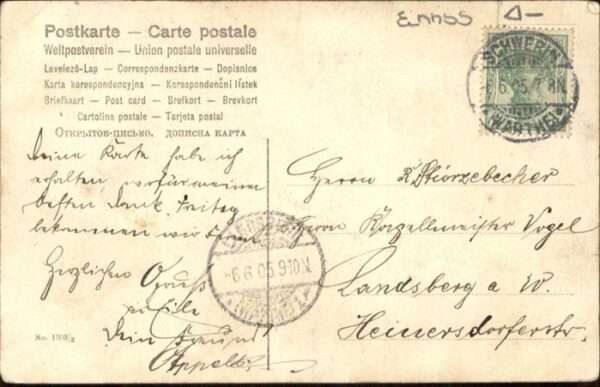 Postkarte — Carte postale
Weltpostverein — Union postale universelle
Levelező-Lap — Correspondenzkarte — Dopisnice
Karta korespondencyjna — Korespondenční lístek
Briefkaart — Post card — Brefkort — Brevkort
Cartolina postale — Tarjeta postal
Открытое письмо. дописна карта
SCHWERIN
6.6.05.7-8N.
(WARTHE)
Deine Karte habe ich
erhalten wofür meinen
besten Dank. Freitag
bekommen wir
Herzlichen Gruß
Dein Freund
Appelt
Herrn K Störzebecher
Herrn Kapellmeister Vogel
Landsberg a W.
Heinersdorferstr.
LANDSBERG
-6.6.05.9-10N.
(WARTHE)
No. 1303/2